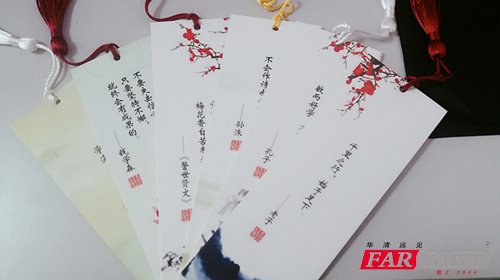 学
不要失去信
只要坚持不懈，
就终会有成果的
——钱学森
梅花香自苦
——《警世贤文》
不会作诗
——孙洙
敏而好学
——孔子
千里之行，始于足下
——老子
华清远见
FARSIGHT
始于 2004